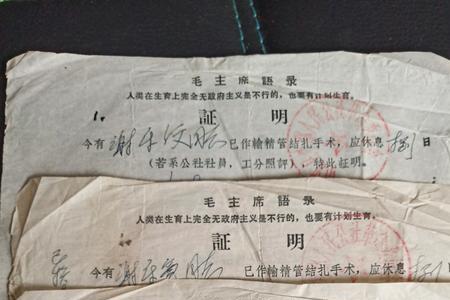 毛主席語录
人类在生育上完全无政府主义是不行的，也要有计划生育。
1. 証明
今有谢 同志 已作輸精管结扎手术，应休息 日
（若系公社社員，工分照評），特此証明。
毛主席語录
人类在生育上完全无政府主义是不行的，也要有计划生育。
証明
今有谢 同志 已作輸精管结扎手术，应休息